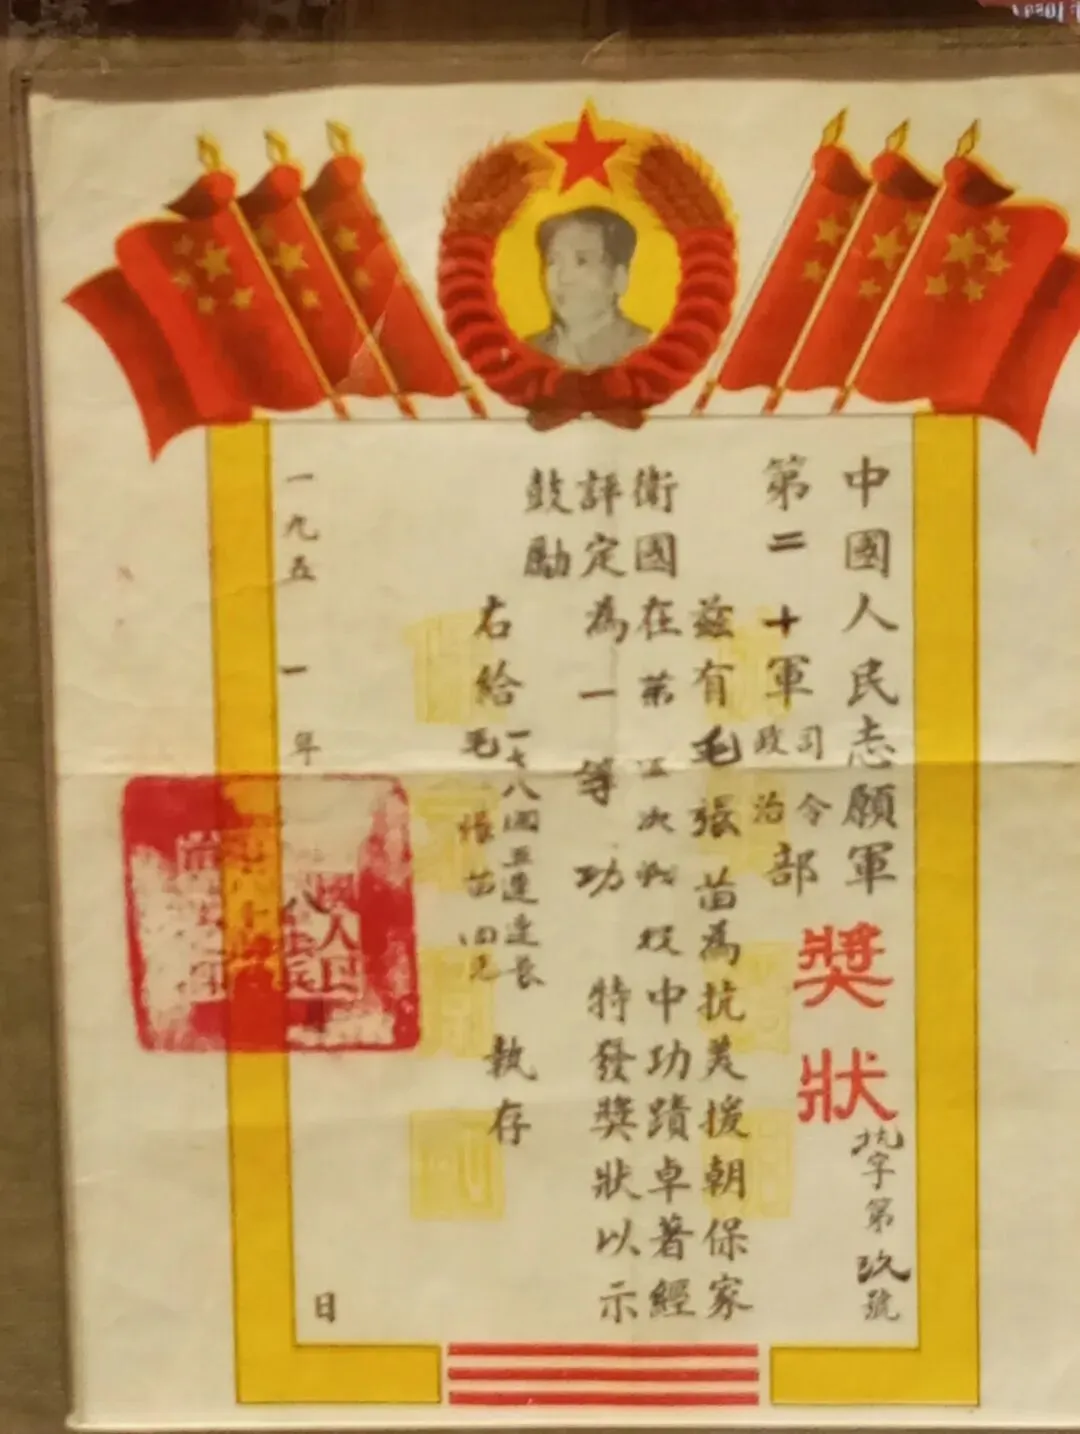 中國人民志愿軍
第二十軍司令政治部
獎狀
字第玖號
茲有毛張苗為抗美援朝保家
衛國在第五次戰役中功蹟卓著經
評定為一等功 特發獎狀以示
鼓勵
右給
一七八團五連連長
毛張苗同志
執存
一九五一年 日